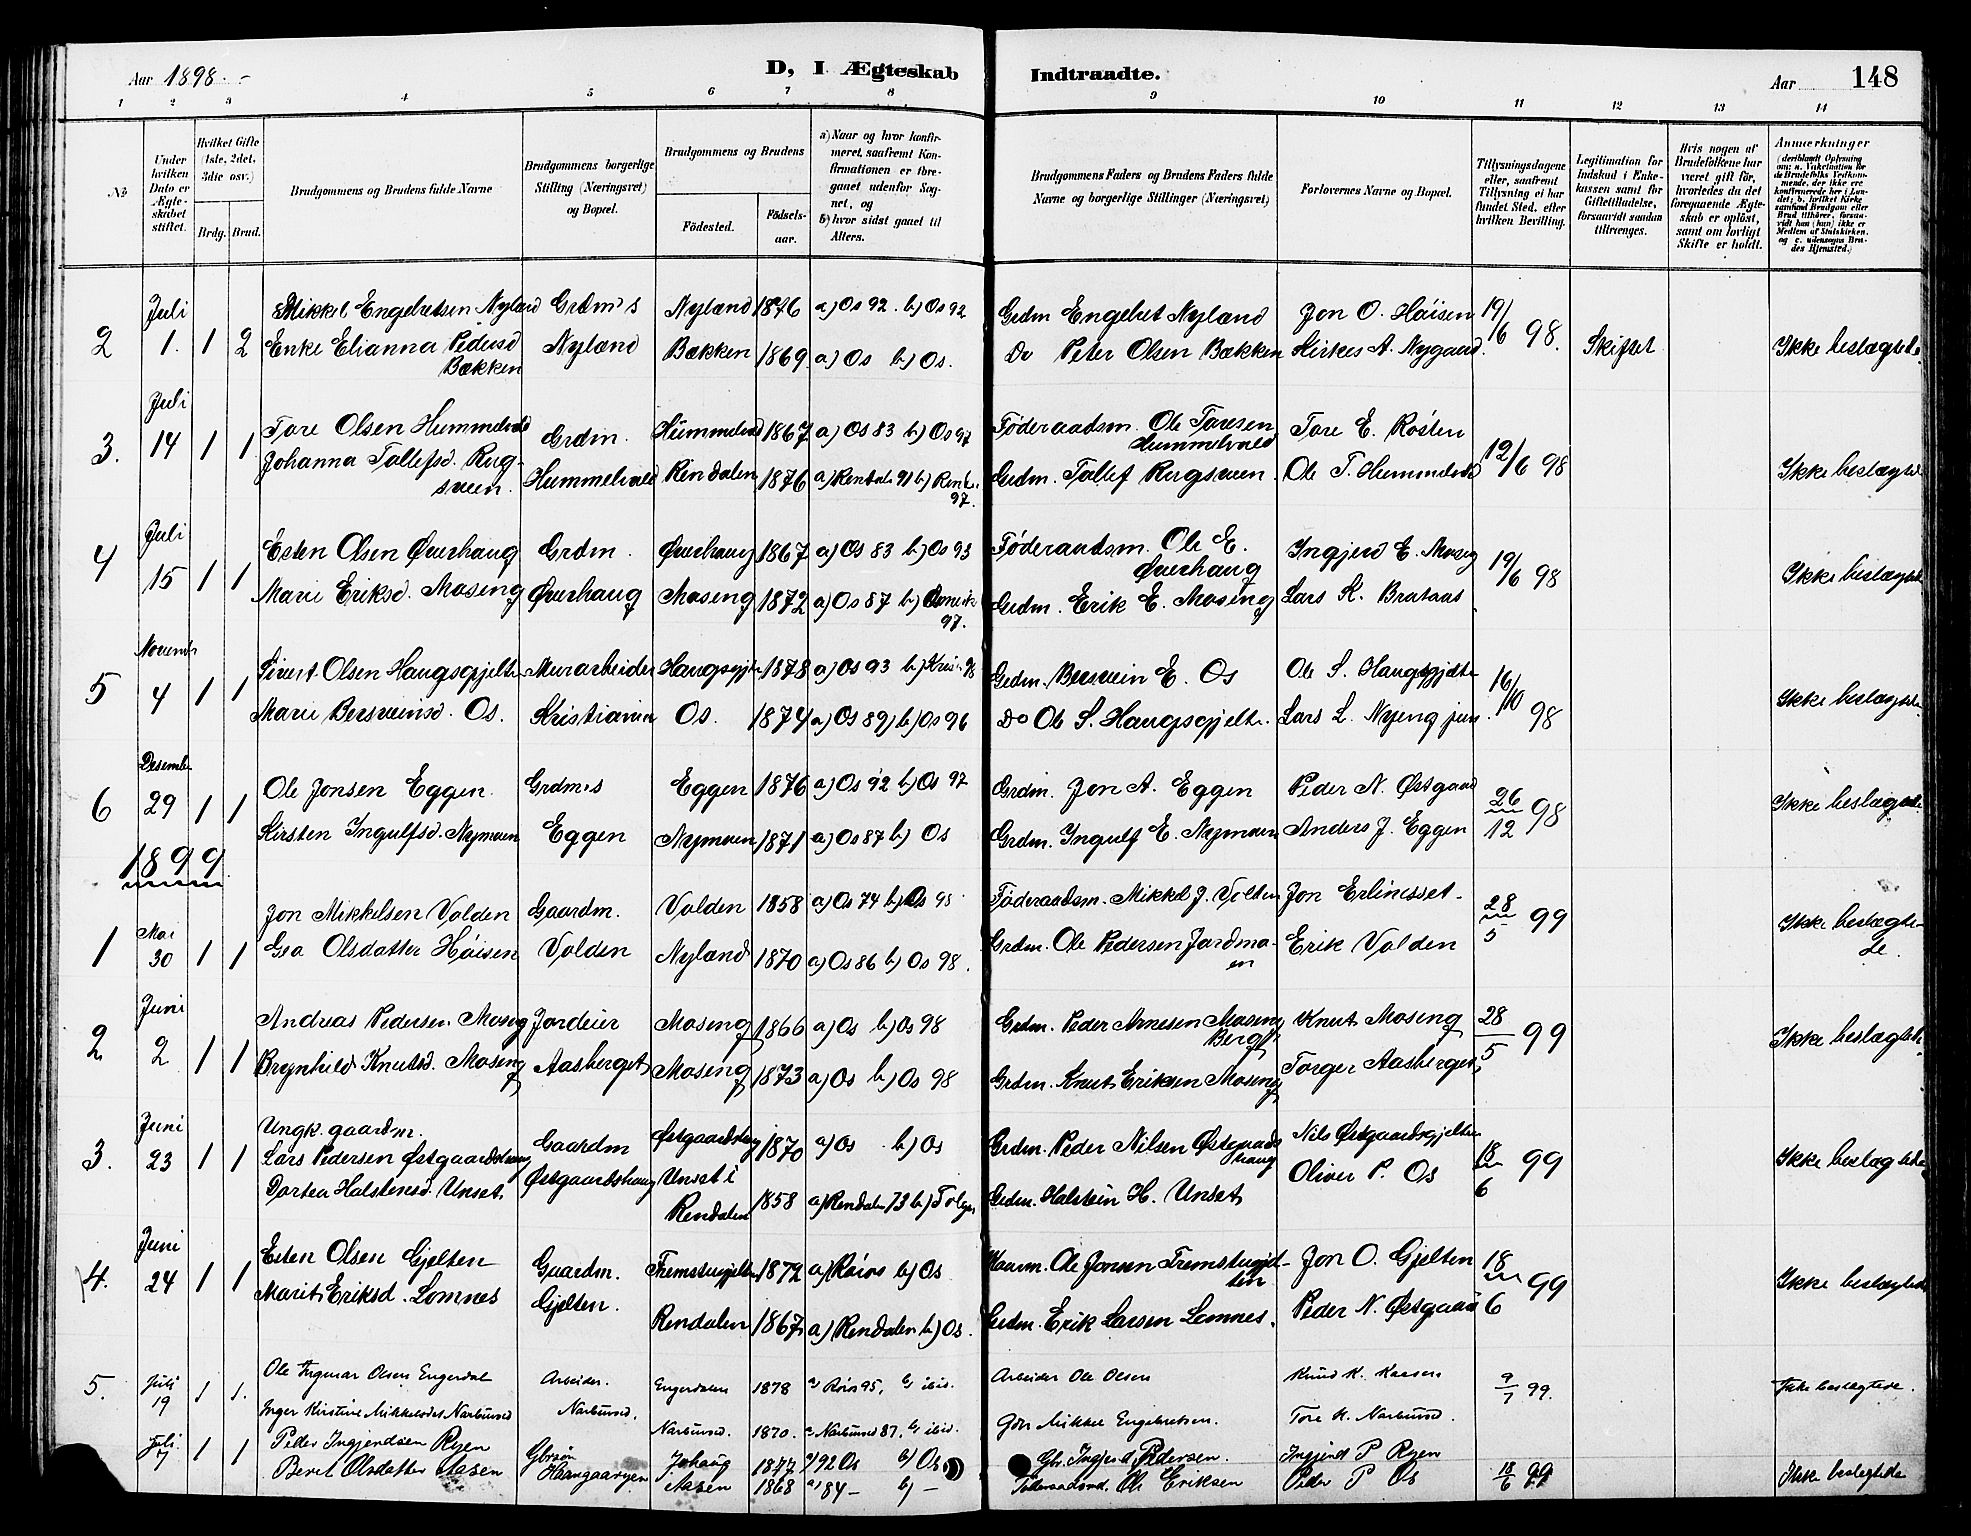 Aar 1898.
D, I Ægteskab Indtraadte.
Aar 148
1 2 3 4 5 6 7 8 9 10 11 12 13 14
No
Under hvilken Dato er Ægteskabet stiftet.
Hvilket Gifte (1ste, 2det, 3die osv.)
Brdg. Brud.
Brudgommens og Brudens fulde Navne
Brudgommens borgerlige Stilling (Næringsvei) og Bopæl.
Brudgommens og Brudens
Fødested.
Fødselsaar.
a) Naar og hvor konfirmeret, saafremt Konfirmationen er foregaaet udenfor Sognet, og
b) hvor sidst gaaet til Alters.
Brudgommens Faders og Brudens Faders fulde Navne og borgerlige Stillinger (Næringsvei)
Forlovernes Navne og Bopæl.
Tillysningsdagene eller, saafremt Tillysning ei har fundet Sted, efter hvilken Bevilling.
Legitimation for Indskud i Enkekassen samt for Giftetilladelse, forsaavidt saadan tiltrænges.
Hvis nogen af Brudefolkene har været gift før, hvorledes da det foregaaende Ægteskab er opløst, samt om lovligt Skifte er holdt.
Anmærkninger
Juli
2 1. 1 2 Mikkel Engebretsen Nyland Grdm's Nyland 1876 a) Os 92 b) Os 92 Grdm Engebret Nyland Jon O. Høisen 19/6 98. Skiftet Ikke beslægtede
Enke Elianna Pedersd Bækken Nyland Bækken 1869 a) Os b) Os. Do Peter Olsen Bækken A. Nygaard
Juli
3. 14 1 1 Tore Olsen Hummelvold Grdm. Hummelvold 1867 a) Os 83 b) Os 97 Føderaadsm. Ole Toresen Hummelvold Tore E. Røsten 12/6 98 Ikke beslægtede
Johanna Tollefsd. Rugsveen. Hummelvold Rendalen 1876 a) Rendalen 91 b) Rend. 97. Grdm. Tollef Rugsveen. Ole T. Hummelvold
Juli
4 15 1 1 Esten Olsen Øverhaug Grdm. Øverhaug 1867 a) Os 83 b) Os 93 Føderaadsm. Ole E. Øverhaug Ingjerd E. Moseng 19/6 98 Ikke beslægtede
Marie Eriksd. Moseng Øverhaug Moseng 1872 a) Os 87 b) 97. Grdm. Erik E. Moseng Lars K. Brataas
Novemb
5 4 1 1 Sivert Olsen Haugsgjelten Murarbeider Haugsgjelten 1878 a) Os 93 b) Kris. 98 Grdm. Bersvein E. Os Ole S. Haugsgjelten 16/10 98 Ikke beslægtede
Marie Bersveinsd. Os. Kristiania Os. 1874 a) Os 89 b) Os 96 Do Ole S. Haugsgjelten. Lars L. Nyeng jun.
Desember
6 29 1 1 Ole Jonsen Eggen Grdm.s Eggen 1876 a) Os 92 b) Os 97 Grdm. Jon A. Eggen Peder N. Østgaard 26/12 98 Ikke beslægtede
Kirsten Ingulfsd. Nymoen Eggen Nymoen 1871 a) Os 87 b) Os Grdm. Ingulf E. Nymoen Anders J. Eggen
1899
1 Mai 30 1 1 Jon Mikkelsen Volden Gaardm. Volden 1858 a) Os 74 b) Os 98 Føderaadsm. Mikkel J. Volden Jon Erlinsset 28/5 99 Ikke beslægtede.
Goa Olsdatter Høisen Volden Nyland 1870 a) Os 86 b) Os 98. Grdm. Ole Pedersen Jordmoen Erik Volden
Juni
2 2 1 1 Andreas Pedersen Moseng Jordeier Moseng 1866 a) Os b) Os 98 Grdm. Peder Arnesen Moseng Berget Knut Moseng 28/5 99 Ikke beslægtede
Brynhild Knutsd. Moseng Aasberget Moseng 1873 a) Os b) Os 98 Grdm. Knut Eriksen Moseng Torger Aasberget
Juni
3. 23 1 1 Ungk. gaardm. Lars Pedersen Østgaardshaug Gaardm Østgaardshaug 1870 a) Os b) Os Grdm. Peder Nilsen Østgaardshaug Nils Østgaardsgjelten 18/6 99 Ikke beslægtede
Dortea Halstensd. Unset Østgaardshaug Unset i Rendalen 1858 a) Rendalen 73 b) Tolgen Grdm. Halstein H. Unset Oliver P. Os
Juni
4. 24 1 1 Esten Olsen Gjelten Gaardm. Fremstugjelten 1872 a) Røros b) Os Ole Jonsen Fremstugjelten Jon O. Gjelten 18/6 99 Ikke beslægtede
Marit Eriksd. Lomnes Gjelten. Rendalen 1867 a) Rendalen b) Os. Grdm. Erik Larsen Lomnes. Peder N. Østgaard
5. Juli 19 1 1. Ole Ingmar Olsen Engerdal Arbeider. Engerdalen 1878 a) Røros 95, b) ibid. Arbeider Ole Olsen Knud K. 9/7 99. Ikke beslægtede.
Inger Kirstine Mikkelsdt Narbuvod Narbuvod. Narbuvod. 1870. a) Narbuvod 87, b) ibid. Mikkel Engebretsen. Tore K. Narbuvod.
Juli. 7 1 1 Peder Ingjerdsen Ryen Gbrsøn Johaug 1877 a) 92 Os b) Os Gbr. Ingjerd Pedersen. Ingjerd P Ryen 18/6 99 Ikke beslegtede
Beret Olsdatter Aasen Haangaaryen Aasen 1868 a) 84 – b) – Føderaadsmd. Ole Eriksen Peder P Os